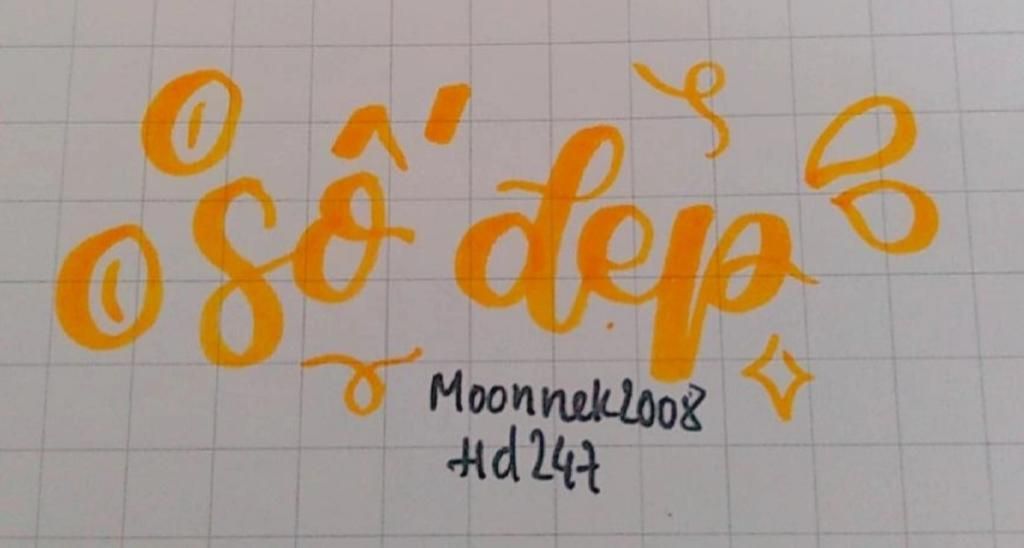 Số đẹp
Moonnek2008
Hd247